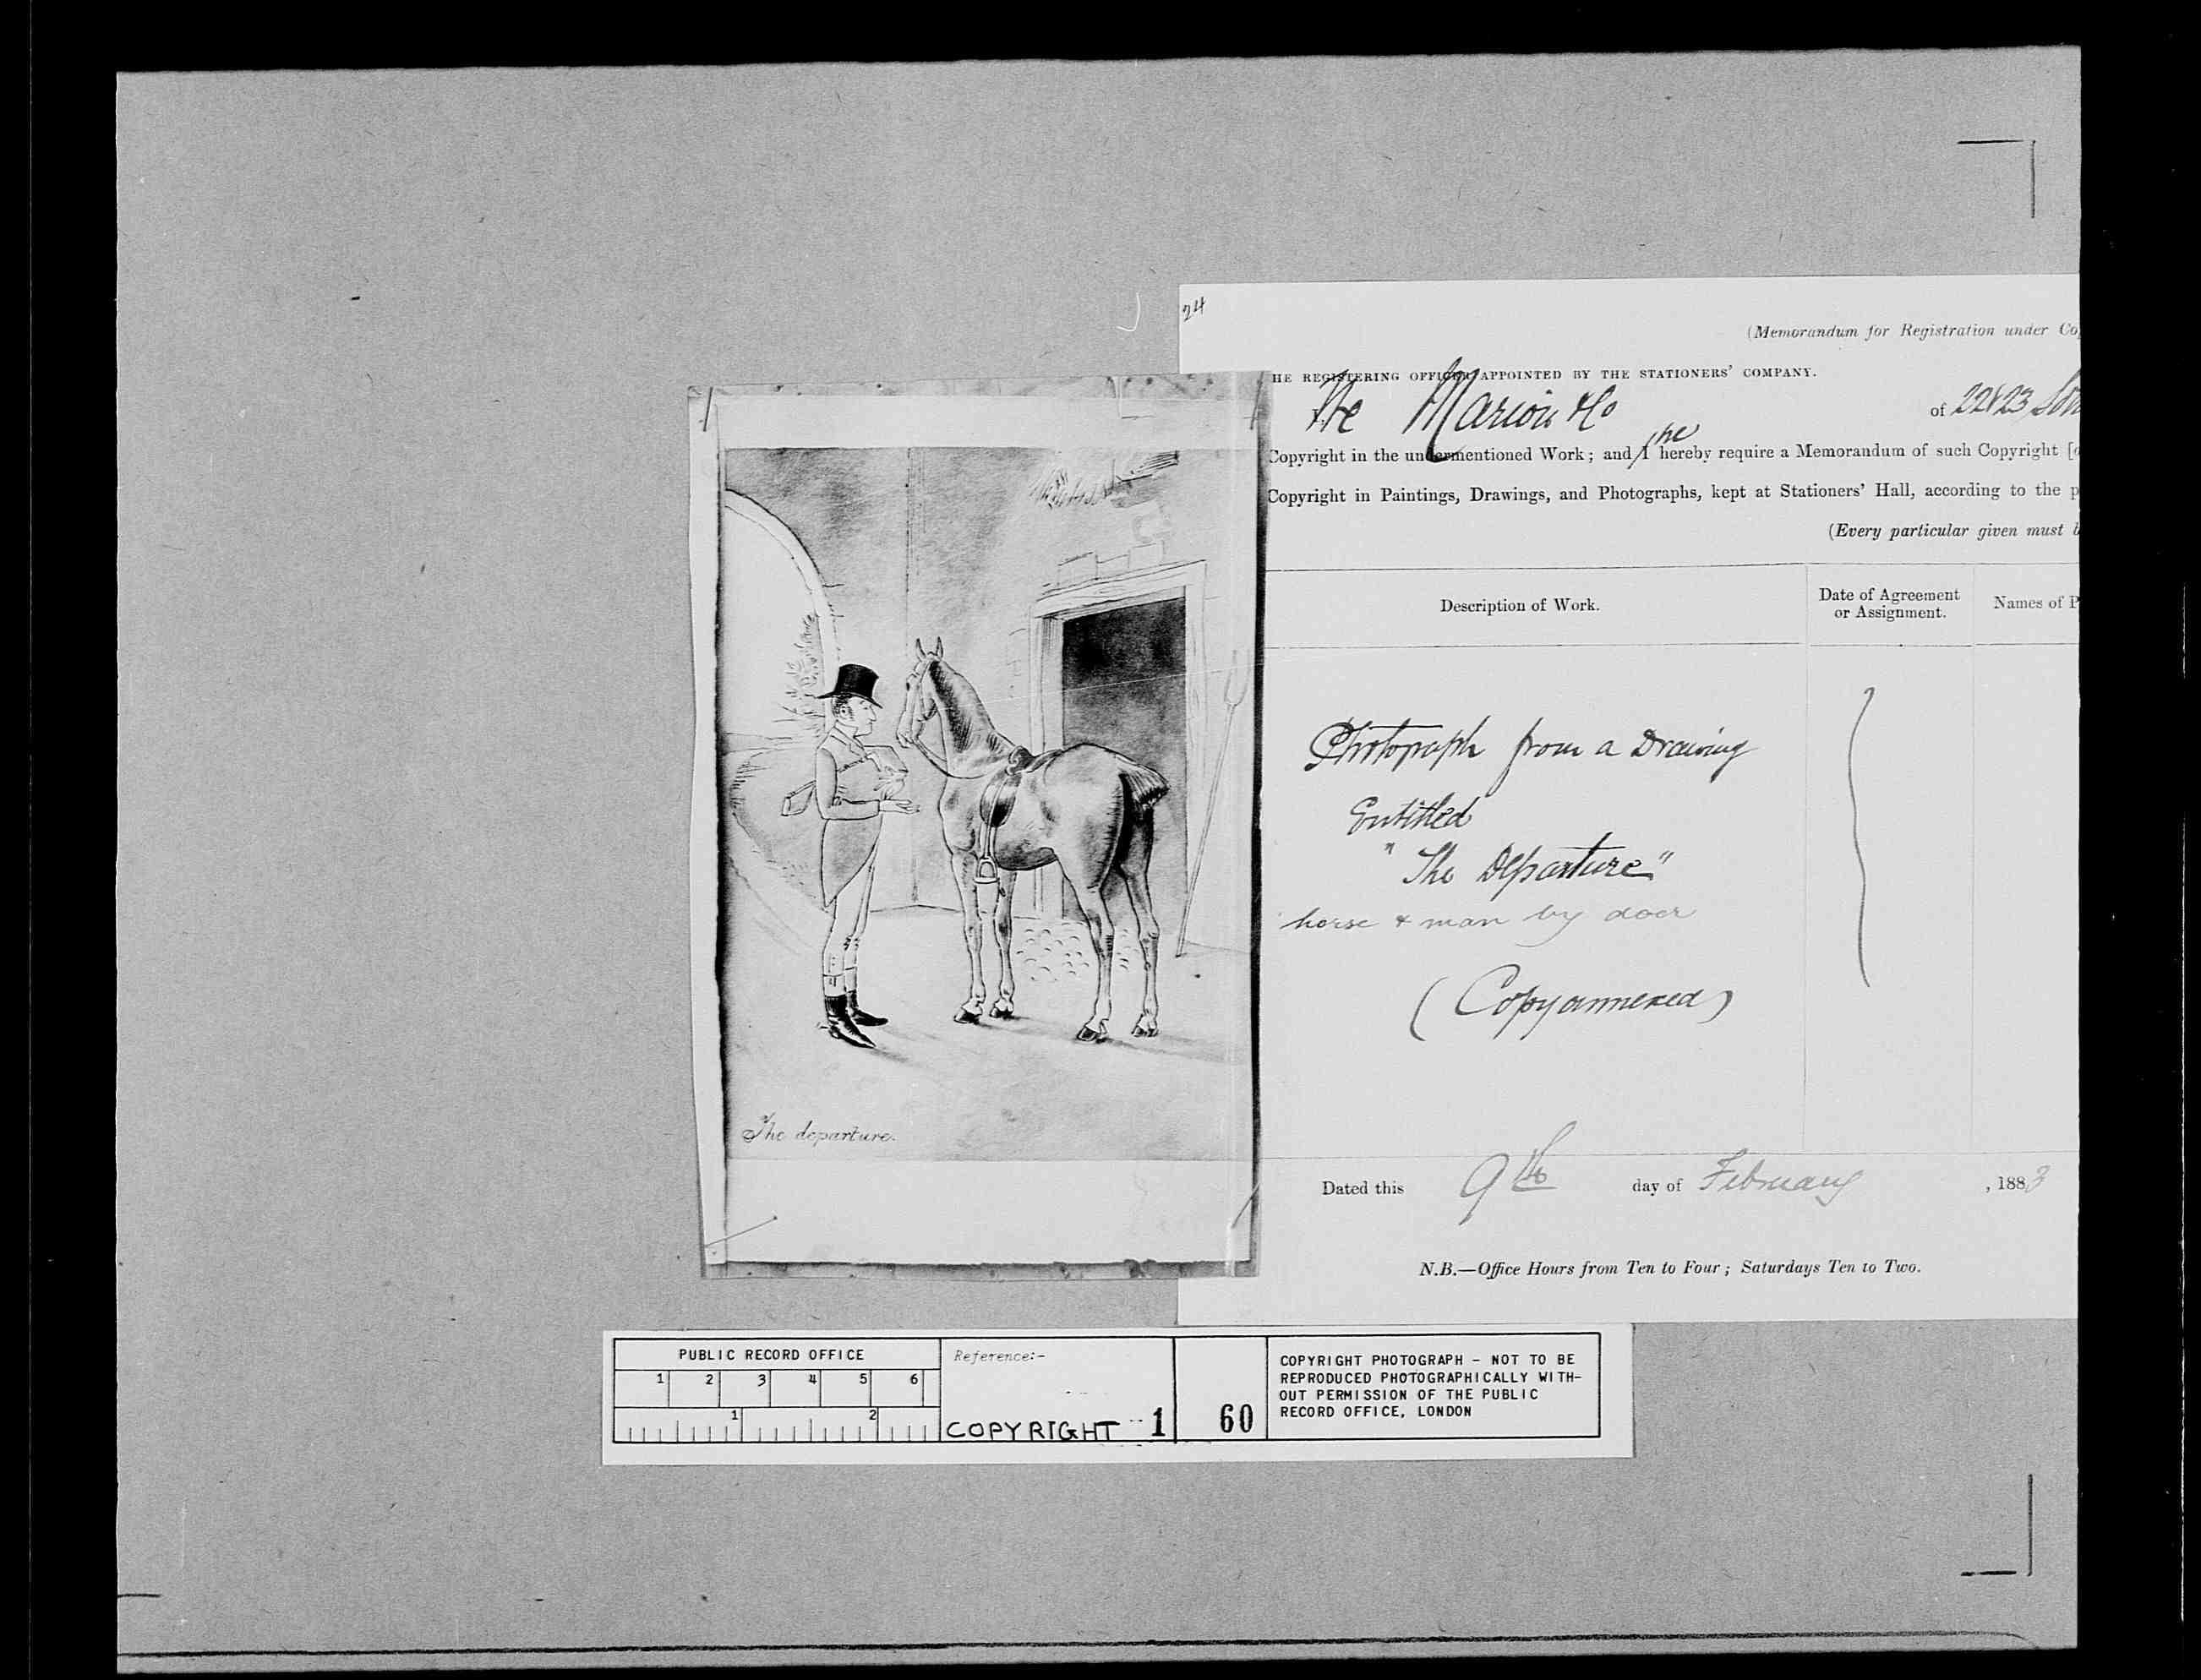 24
(Memorandum for Registration under Co
HE REGISTERING OFFICER APPOINTED BY THE STATIONERS' COMPANY.
We Marion & Co of 22 & 23
Copyright in the undermentioned Work; and I we hereby require a Memorandum of such Copyright [
Copyright in Paintings, Drawings, and Photographs, kept at Stationers' Hall, according to the p
(Every particular given must b
Description of Work.
Date of Agreement
or Assignment.
Names of P
Photograph from a Drawing
Entitled
"The Departure"
horse & man by door
(Copy annexed)
Dated this 9th day of February, 1883
N.B.—Office Hours from Ten to Four; Saturdays Ten to Two.
The departure.
PUBLIC RECORD OFFICE
1 2 3 4 5 6
1 2
Reference:-
COPYRIGHT 1
60
COPYRIGHT PHOTOGRAPH - NOT TO BE
REPRODUCED PHOTOGRAPHICALLY WITH-
OUT PERMISSION OF THE PUBLIC
RECORD OFFICE, LONDON